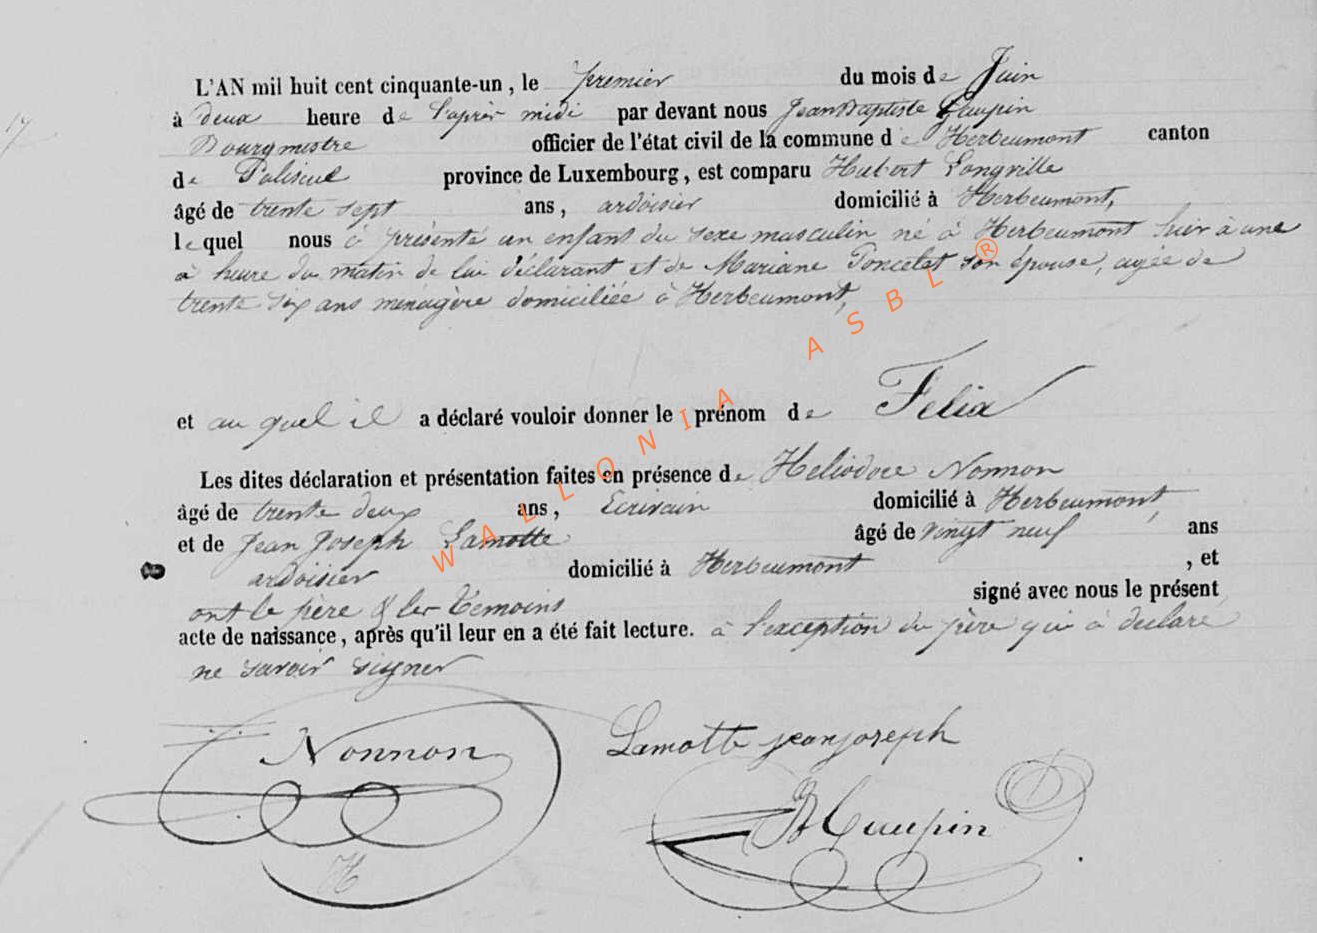 17
L'AN mil huit cent cinquante-un, le premier du mois de Juin
à deux heure de l'après midi par devant nous Jean Baptiste Gaupin
Bourgmestre officier de l'état civil de la commune de Herbeumont canton
de Paliseul province de Luxembourg, est comparu Hubert Longville
âgé de trente sept ans, ardoisier domicilié à Herbeumont,
lequel nous à présenté un enfant du sexe masculin né à Herbeumont hier à une
à heure du matin de lui déclarant et de Mariane Poncelet son épouse, agée de
trente six ans menagère domiciliée à Herbeumont,
et au quel il a déclaré vouloir donner le prénom de Felix
Les dites déclaration et présentation faites en présence de Heliodore Nonnon
âgé de trente deux ans, Ecrivain domicilié à Herbeumont,
et de Jean Joseph Lamotte âgé de vingt neuf ans
ardoisier domicilié à Herbeumont, et
ont le père & les temoins signé avec nous le présent
acte de naissance, après qu'il leur en a été fait lecture. à l'exception du père qui à declaré
ne savoir signer
Nonnon Lamotte jeanjoseph
Gaupin
H
WALLONIA ASBL ®